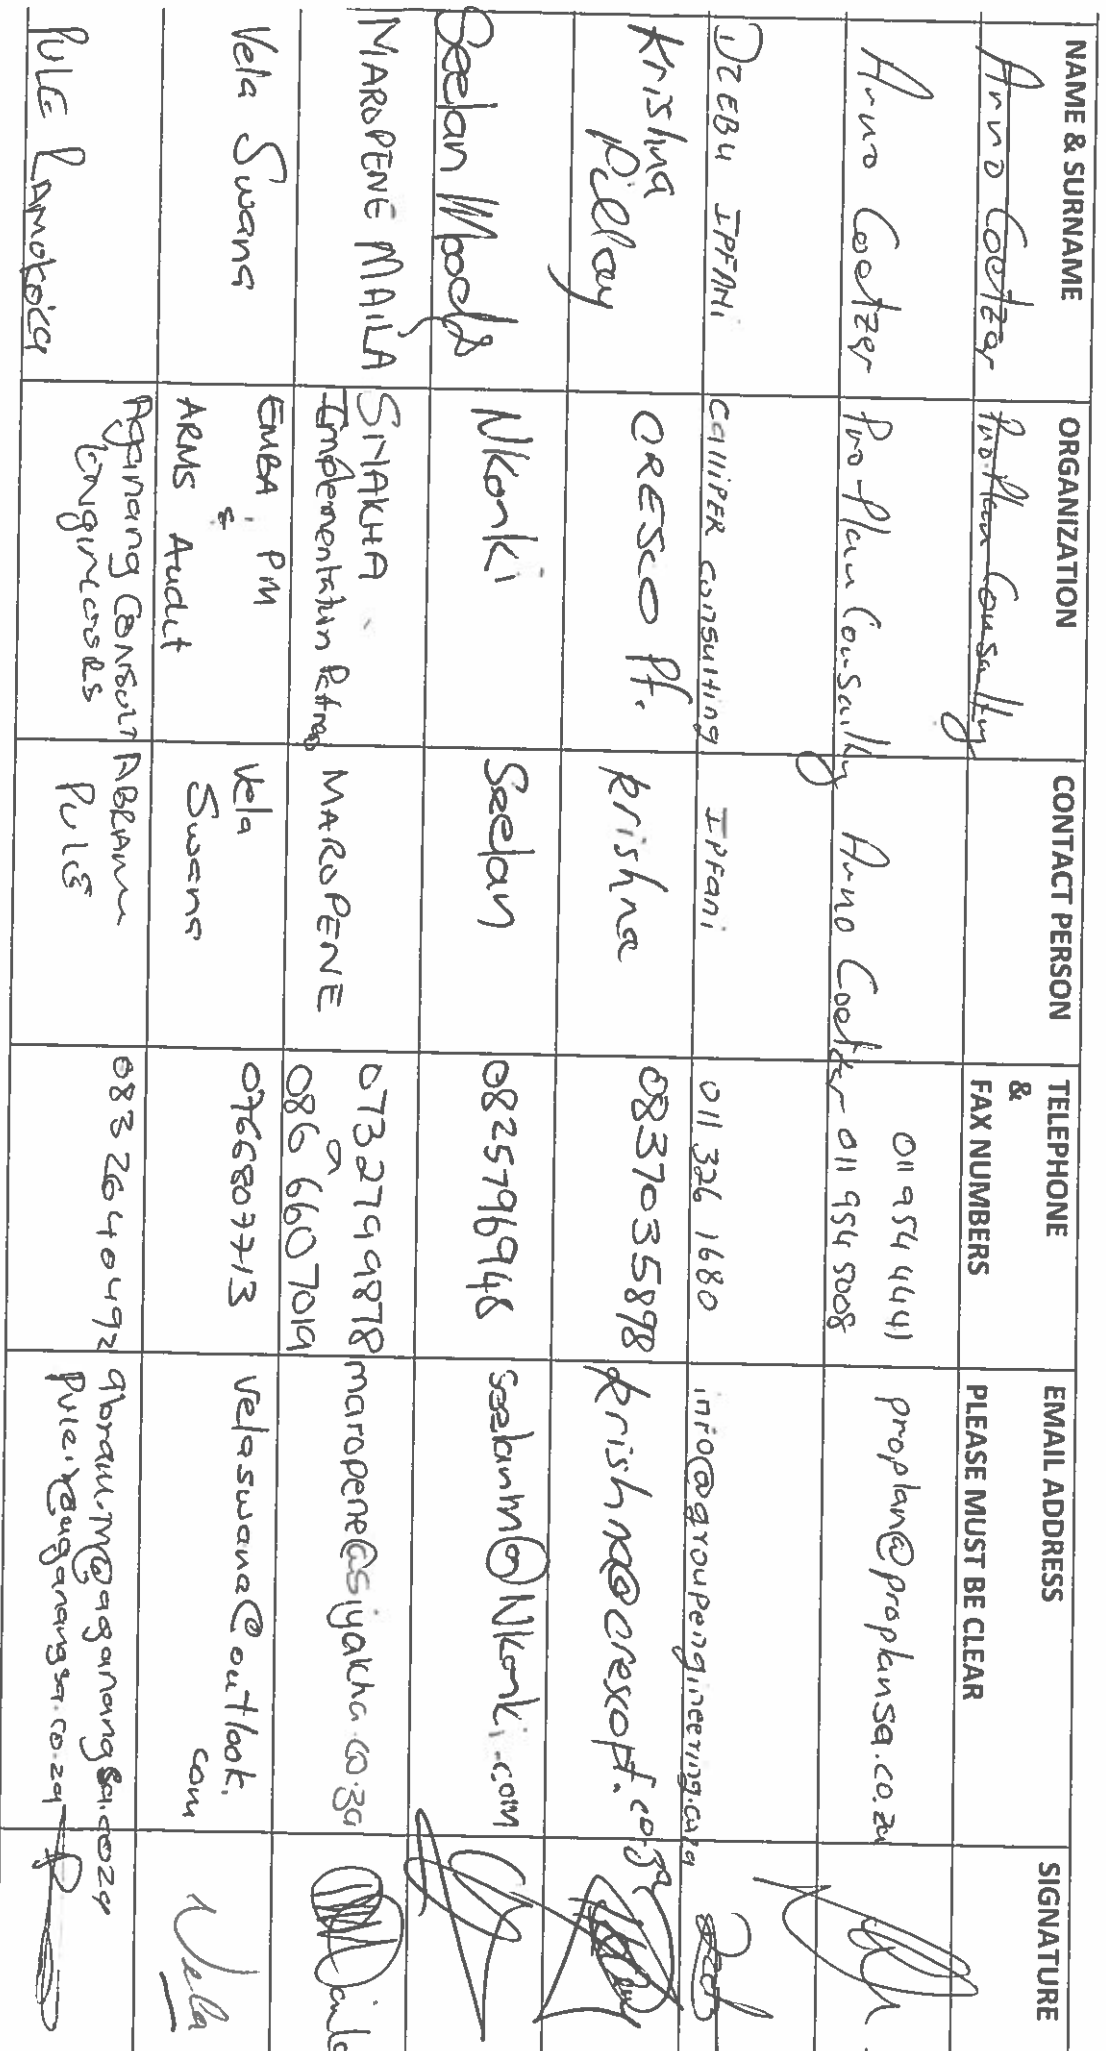 NAME & SURNAME
ORGANIZATION
CONTACT PERSON
TELEPHONE
&
FAX NUMBERS
EMAIL ADDRESS
PLEASE MUST BE CLEAR
SIGNATURE
Arno Coetzer
Pro-Plan Consulting
Arno Coetzer
Pro-Plan Consulting
Arno Coetzer
011 954 4441
011 954 5008
proplan@proplansa.co.za
DZEBU IPFANI
CALLIPER consulting
IPFani
011 326 1680
info@groupengineering.co.za
Krishna
Pillay
CRESCO Pf.
Krishna
0837035898
Krishna@crescopf.co.za
Seelan Moody
Nkonki
Seelan
0825796948
seelanm@Nkonki.com
MAROPENE MAILA
Implementation
MAROPENE
0732799878
086 660 7019
maropene@siyakha.co.za
Vela Swana
EMBA PM
&
ARMS Audit
Vela
Swana
0766807713
Velaswana@outlook.
com
Vela
PULE RAMOKOKA
Aganang Consult
Engineers
ABRAM
PULE
083 264 0492
abram.m@aganangsa.co.za
pule.r@aganangsa.co.za